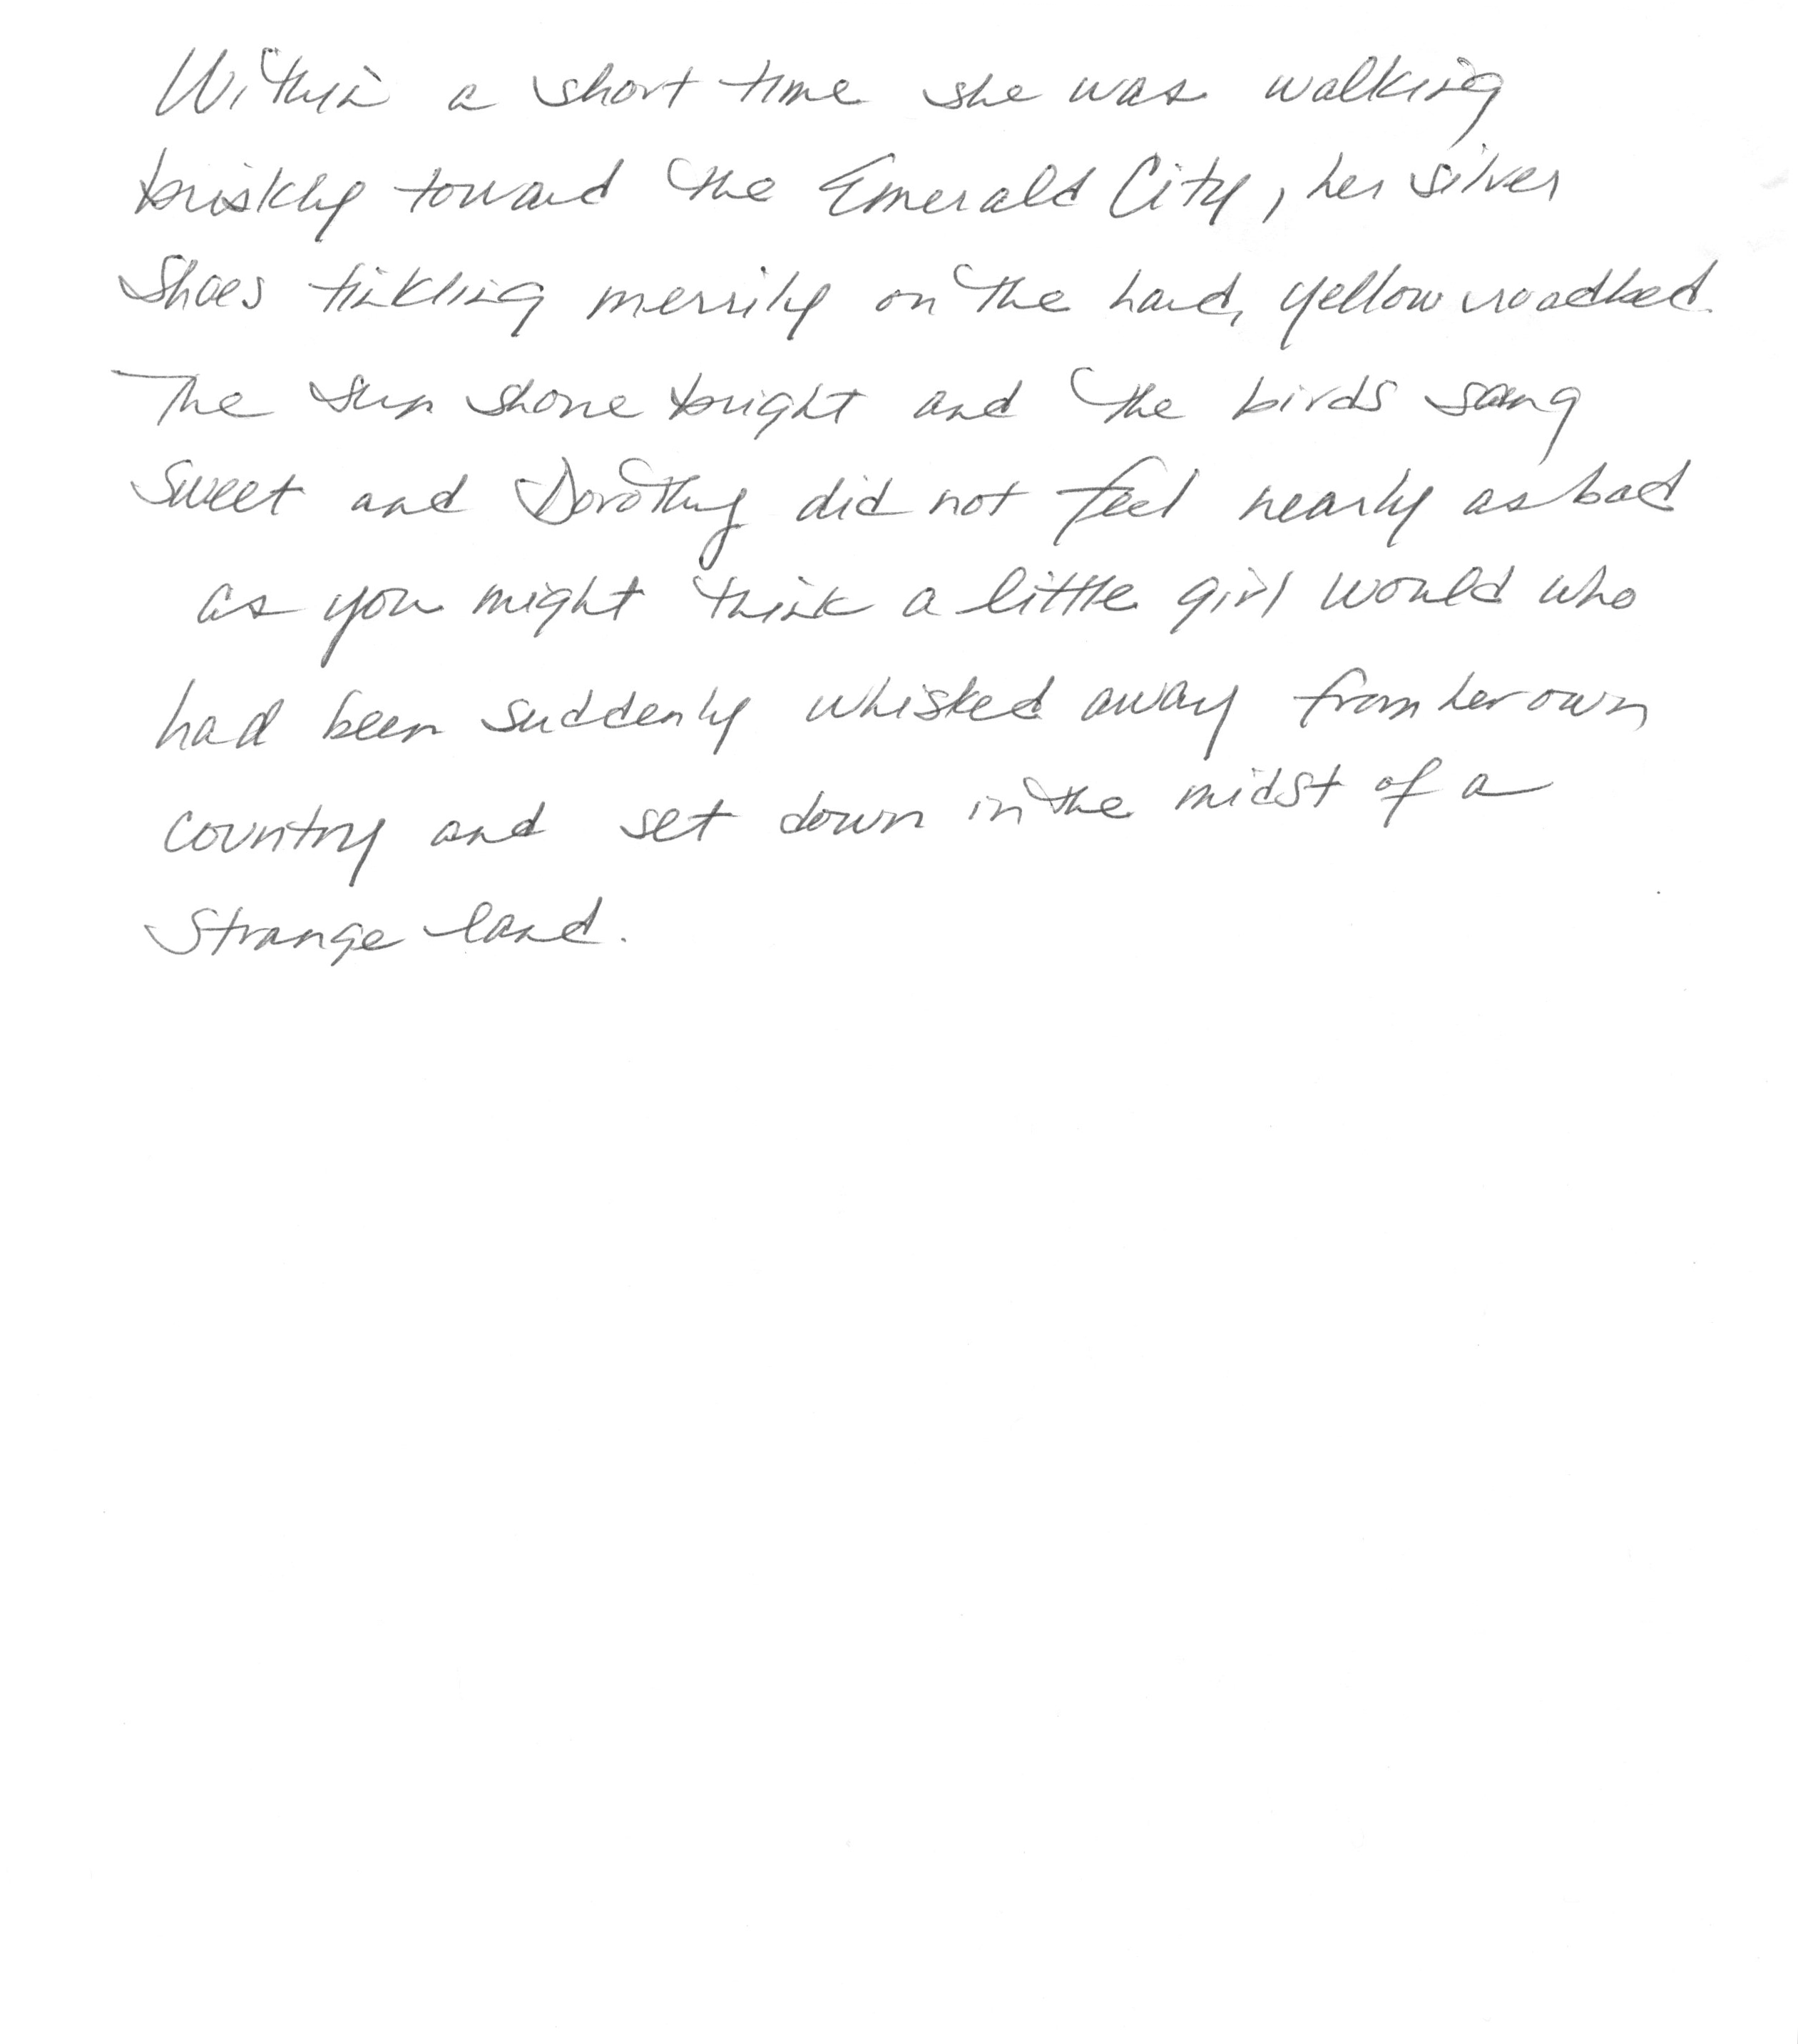 Within a short time she was walking
briskly toward the Emerald City, her silver
Shoes tinkling merrily on the hard, yellow roadbed.
The sun shone bright and the birds sang
sweet and Dorothy did not feel nearly as bad
as you might think a little girl would who
had been suddenly whisked away from her own
country and set down in the midst of a
strange land.